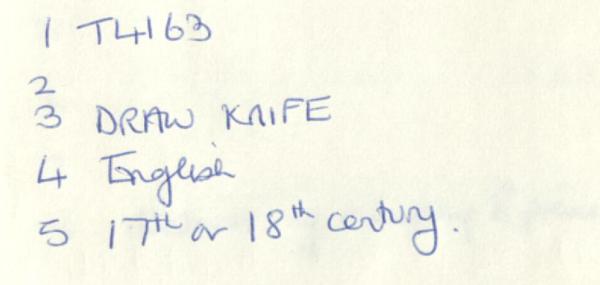 1 T4163
2
3 DRAW KNIFE
4 English
5 17th or 18th century.